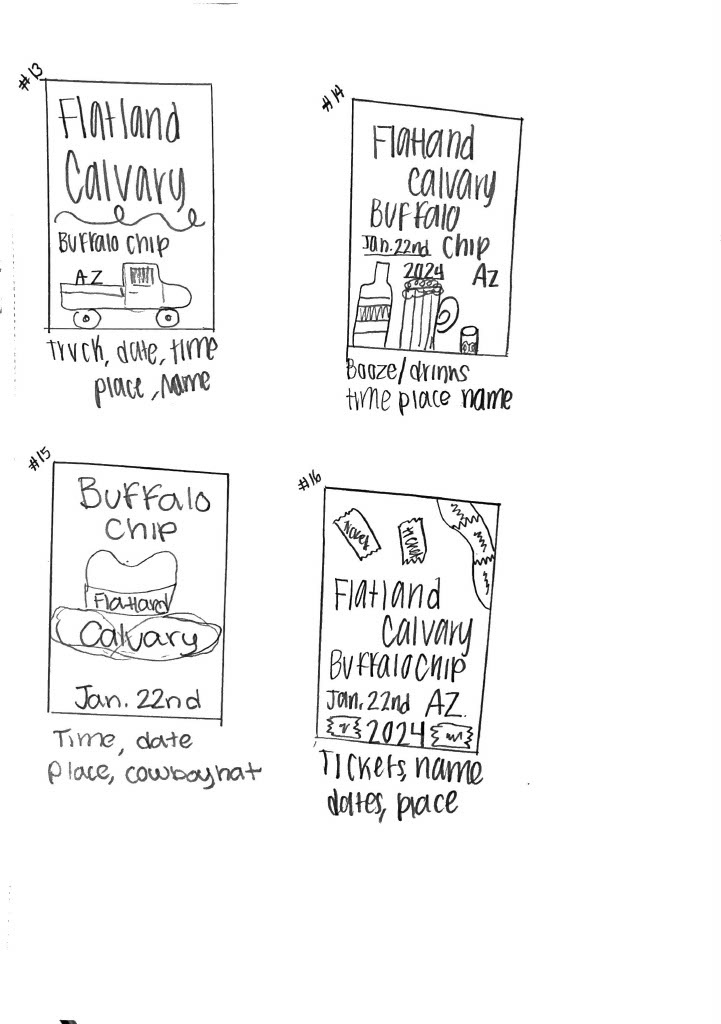 #13
Flatland
Calvary
Buffalo Chip
AZ
Truck, date, time
place, Name
#14
Flatland
Calvary
Buffalo
Jan. 22nd Chip
2024 AZ
Booze/drinks
time place name
#15
Buffalo
Chip
Flatland
Calvary
Jan. 22nd
Time, date
place, cowboy hat
#16
ticket
tickets
Flatland
Calvary
Buffalo Chip
Jan. 22nd AZ.
2024
Tickets, name
dates, place